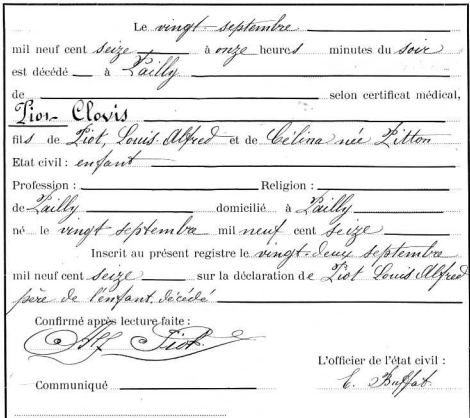 Le vingt septembre
mil neuf cent seize à onze heures minutes du soir
est décédé à Pailly
de selon certificat médical,
Piot Clovis
fils de Piot, Louis Alfred et de Célina née Pitton
Etat civil : enfant
Profession : Religion :
de Pailly domicilié à Pailly
né le vingt septembre mil neuf cent seize
Inscrit au présent registre le vingt-deux septembre
mil neuf cent seize sur la déclaration de Piot Louis Alfred
père de l'enfant décédé
Confirmé après lecture faite :
Alf Piot.
L'officier de l'état civil :
Communiqué E. Buffat